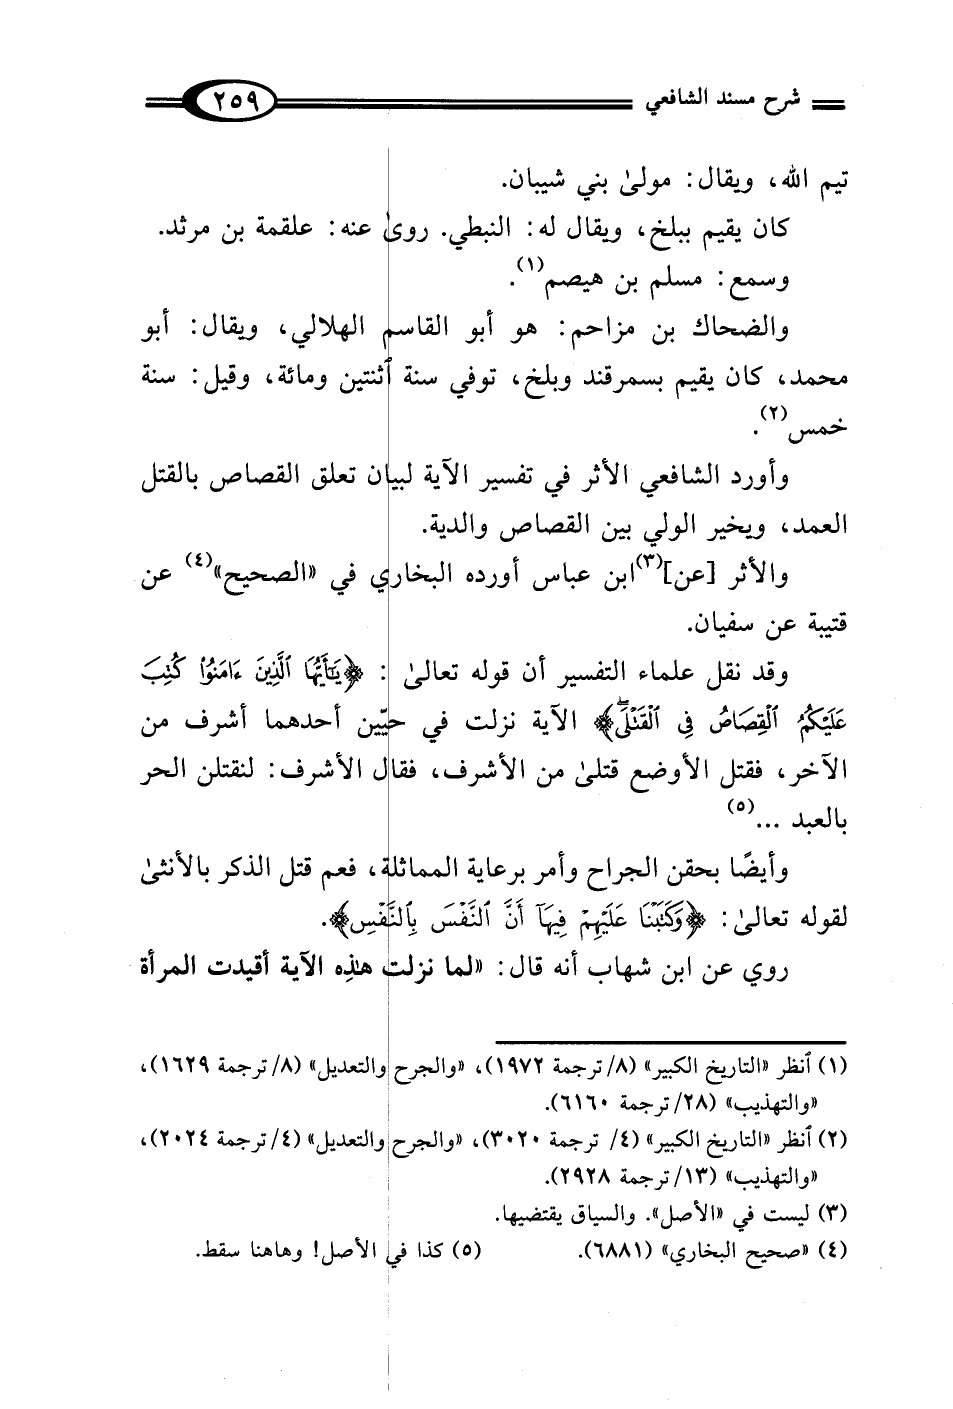 شرح مسند الشافعي ٢٥٩
تيم الله، ويقال: مولىٰ بني شيبان.
كان يقيم ببلخ، ويقال له: النبطي. روىٰ عنه: علقمة بن مرثد.
وسمع: مسلم بن هيصم(١).
والضحاك بن مزاحم: هو أبو القاسم الهلالي، ويقال: أبو
محمد، كان يقيم بسمرقند وبلخ، توفي سنة ٱثنتين ومائة، وقيل: سنة
خمس(٢).
وأورد الشافعي الأثر في تفسير الآية لبيان تعلق القصاص بالقتل
العمد، ويخير الولي بين القصاص والدية.
والأثر [عن](٣)ابن عباس أورده البخاري في «الصحيح»(٤) عن
قتيبة عن سفيان.
وقد نقل علماء التفسير أن قوله تعالىٰ : ﴿يَٰٓأَيُّهَا ٱلَّذِينَ ءَامَنُوا۟ كُتِبَ
عَلَيْكُمُ ٱلْقِصَاصُ فِى ٱلْقَتْلَىۖ﴾ الآية نزلت في حيّين أحدهما أشرف من
الآخر، فقتل الأوضع قتلىٰ من الأشرف، فقال الأشرف: لنقتلن الحر
بالعبد ...(٥)
وأيضًا بحقن الجراح وأمر برعاية المماثلة، فعم قتل الذكر بالأنثىٰ
لقوله تعالىٰ: ﴿وَكَتَبْنَا عَلَيْهِمْ فِيهَآ أَنَّ ٱلنَّفْسَ بِٱلنَّفْسِ﴾.
روي عن ابن شهاب أنه قال: «لما نزلت هٰذِه الآية أقيدت المرأة
(١) ٱنظر «التاريخ الكبير» (٨/ ترجمة ١٩٧٢)، «والجرح والتعديل» (٨/ ترجمة ١٦٢٩)،
«والتهذيب» (٢٨/ ترجمة ٦١٦٠).
(٢) ٱنظر «التاريخ الكبير» (٤/ ترجمة ٣٠٢٠)، «والجرح والتعديل» (٤/ ترجمة ٢٠٢٤)،
«والتهذيب» (١٣/ ترجمة ٢٩٢٨).
(٣) ليست في «الأصل». والسياق يقتضيها.
(٤) «صحيح البخاري» (٦٨٨١). (٥) كذا في الأصل! وهاهنا سقط.